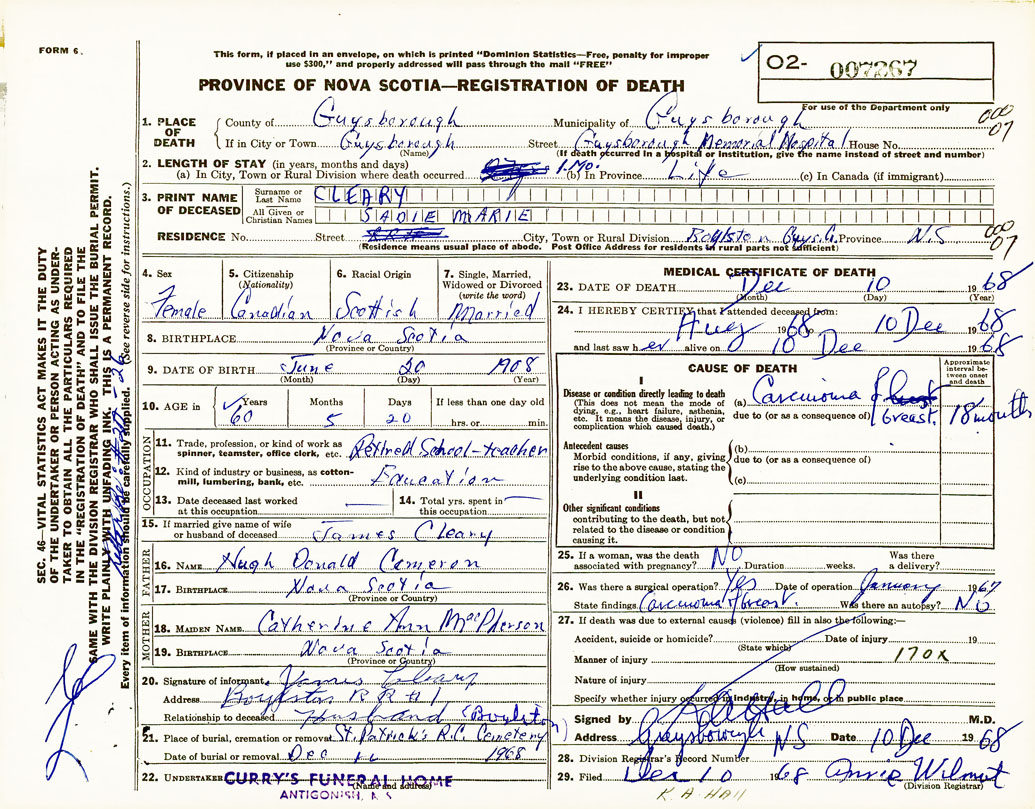 FORM 6.
This form, if placed in an envelope, on which is printed "Dominion Statistics—Free, penalty for improper
use $300," and properly addressed will pass through the mail "FREE"
PROVINCE OF NOVA SCOTIA—REGISTRATION OF DEATH
O2- 007267
For use of the Department only
000
07
1. PLACE OF DEATH
County of Guysborough Municipality of Guysborough
If in City or Town Guysborough Street Guysborough Memorial Hospital House No.
(Name) (If death occurred in a hospital or institution, give the name instead of street and number)
2. LENGTH OF STAY (in years, months and days)
(a) In City, Town or Rural Division where death occurred 1. Mo. (b) In Province Life (c) In Canada (if immigrant)
3. PRINT NAME OF DECEASED
Surname or Last Name CLEARY
All Given or Christian Names SADIE MARIE
RESIDENCE No. Street City, Town or Rural Division Boylston Guys. Co. Province N.S
(Residence means usual place of abode. Post Office Address for residents in rural parts not sufficient)
000
07
4. Sex Female
5. Citizenship (Nationality) Canadian
6. Racial Origin Scottish
7. Single, Married, Widowed or Divorced (write the word) Married
8. BIRTHPLACE Nova Scotia
(Province or Country)
9. DATE OF BIRTH June 20 1908
(Month) (Day) (Year)
10. AGE in Years Months Days If less than one day old
60 5 20 hrs. or min.
OCCUPATION
11. Trade, profession, or kind of work as
spinner, teamster, office clerk, etc. Retired School-teacher
12. Kind of industry or business, as cotton-
mill, lumbering, bank, etc. Education
13. Date deceased last worked
at this occupation.
14. Total yrs. spent in
this occupation.
15. If married give name of wife
or husband of deceased James Cleary
FATHER
16. NAME Hugh Donald Cameron
17. BIRTHPLACE Nova Scotia
(Province or Country)
MOTHER
18. MAIDEN NAME. Catherine Ann MacPherson
19. BIRTHPLACE Nova Scotia
(Province or Country)
20. Signature of informant. James Cleary
Address Boylston R R # 1
Relationship to deceased husband (Boylston)
21. Place of burial, cremation or removal St. Patrick's R.C. Cemetery
Date of burial or removal Dec 1968
22. UNDERTAKER CURRY'S FUNERAL HOME
(Name and address)
ANTIGONISH, N S
MEDICAL CERTIFICATE OF DEATH
23. DATE OF DEATH Dec 10 1968
(Month) (Day) (Year)
24. I HEREBY CERTIFY that I attended deceased from:
Aug 1968 to 10 Dec 1968
and last saw her alive on 10 Dec 1968
CAUSE OF DEATH
Approximate interval between onset and death
I
Disease or condition directly leading to death
(This does not mean the mode of
dying, e.g., heart failure, asthenia,
etc. It means the disease, injury, or
complication which caused death.)
(a) Carcinoma of
due to (or as a consequence of) breast. 18 months
Antecedent causes
Morbid conditions, if any, giving
rise to the above cause, stating the
underlying condition last.
(b)
due to (or as a consequence of)
(c)
II
Other significant conditions
contributing to the death, but not
related to the disease or condition
causing it.
25. If a woman, was the death
associated with pregnancy? NO Duration weeks. Was there a delivery?
26. Was there a surgical operation? Yes Date of operation January 1967
State findings Carcinoma of breast. Was there an autopsy? NO
27. If death was due to external causes (violence) fill in also the following:—
Accident, suicide or homicide? Date of injury 19
(State which)
Manner of injury 170X
(How sustained)
Nature of injury
Specify whether injury occurred in industry, in home, or in public place
Signed by M.D.
Address Guysborough NS Date 10 Dec 1968
28. Division Registrar's Record Number
29. Filed Dec 10 1968 Annie Wilmot
(Division Registrar)
K. A. Hall
SEC. 46—VITAL STATISTICS ACT MAKES IT THE DUTY
OF THE UNDERTAKER OR PERSON ACTING AS UNDER-
TAKER TO OBTAIN ALL THE PARTICULARS REQUIRED
IN THE "REGISTRATION OF DEATH" AND TO FILE THE
SAME WITH THE DIVISION REGISTRAR WHO SHALL ISSUE THE BURIAL PERMIT.
WRITE PLAINLY WITH UNFADING INK. THIS IS A PERMANENT RECORD.
Every item of information should be carefully supplied. (See reverse side for instructions.)